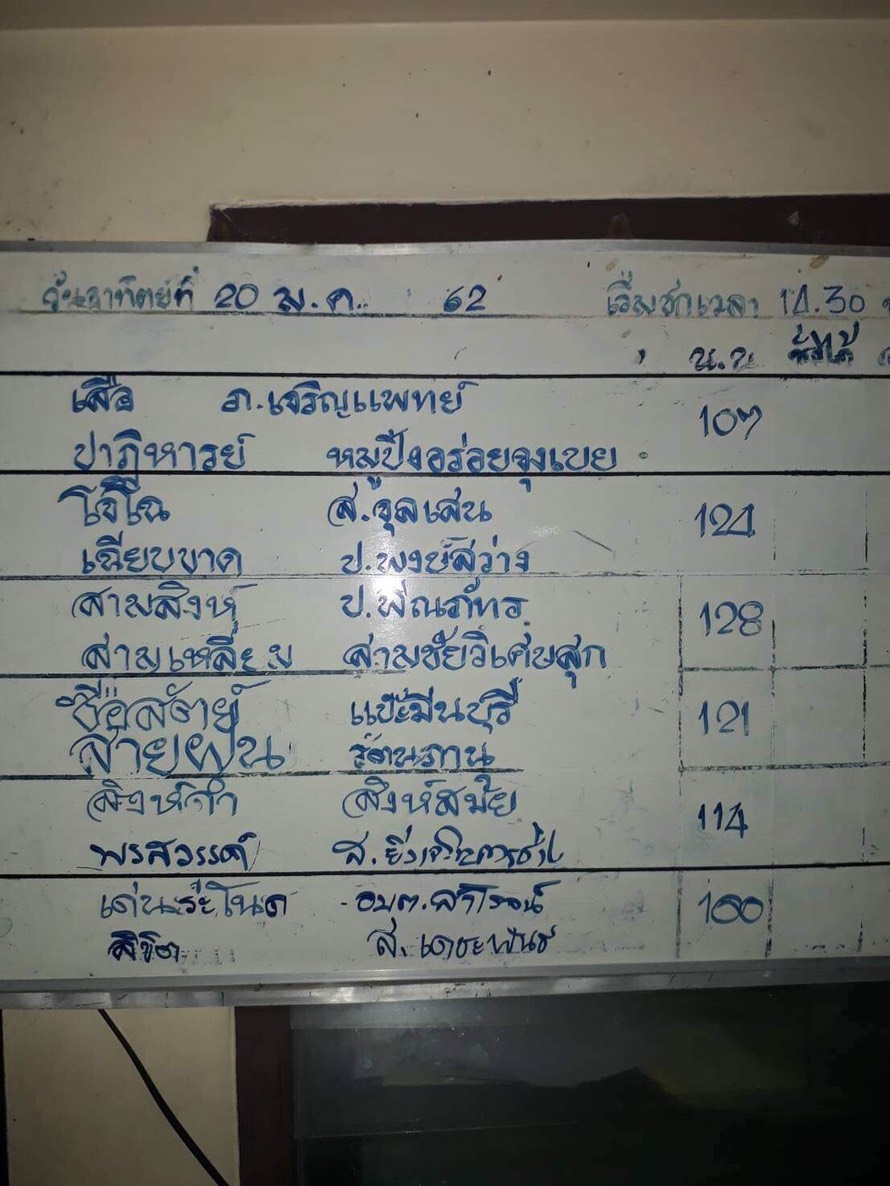 วันอาทิตย์ที่ 20 ม.ค. 62 เริ่มชกเวลา 14.30
น.น ชั่งได้
เสือ ภ.เจริญแพทย์ 107
ปาฏิหารย์ หมูปิ้งอร่อยจุงเบย
โจโฉ ส.จุลเสน 124
เฉียบขาด ป.พงษ์สว่าง
สามสิงห์ ป.พีณภัทร 128
สามเหลี่ยม สามชัยวิเศษสุก
ซื่อสัตย์ แป๊ะมีนบุรี 121
สายฝน รัตนภานุ
สิงห์ดำ สิงห์สมัย 114
พรสวรรค์ ส.
เด่นระโนด อบต. 100
ลิขิต ส.เดชะพันธ์